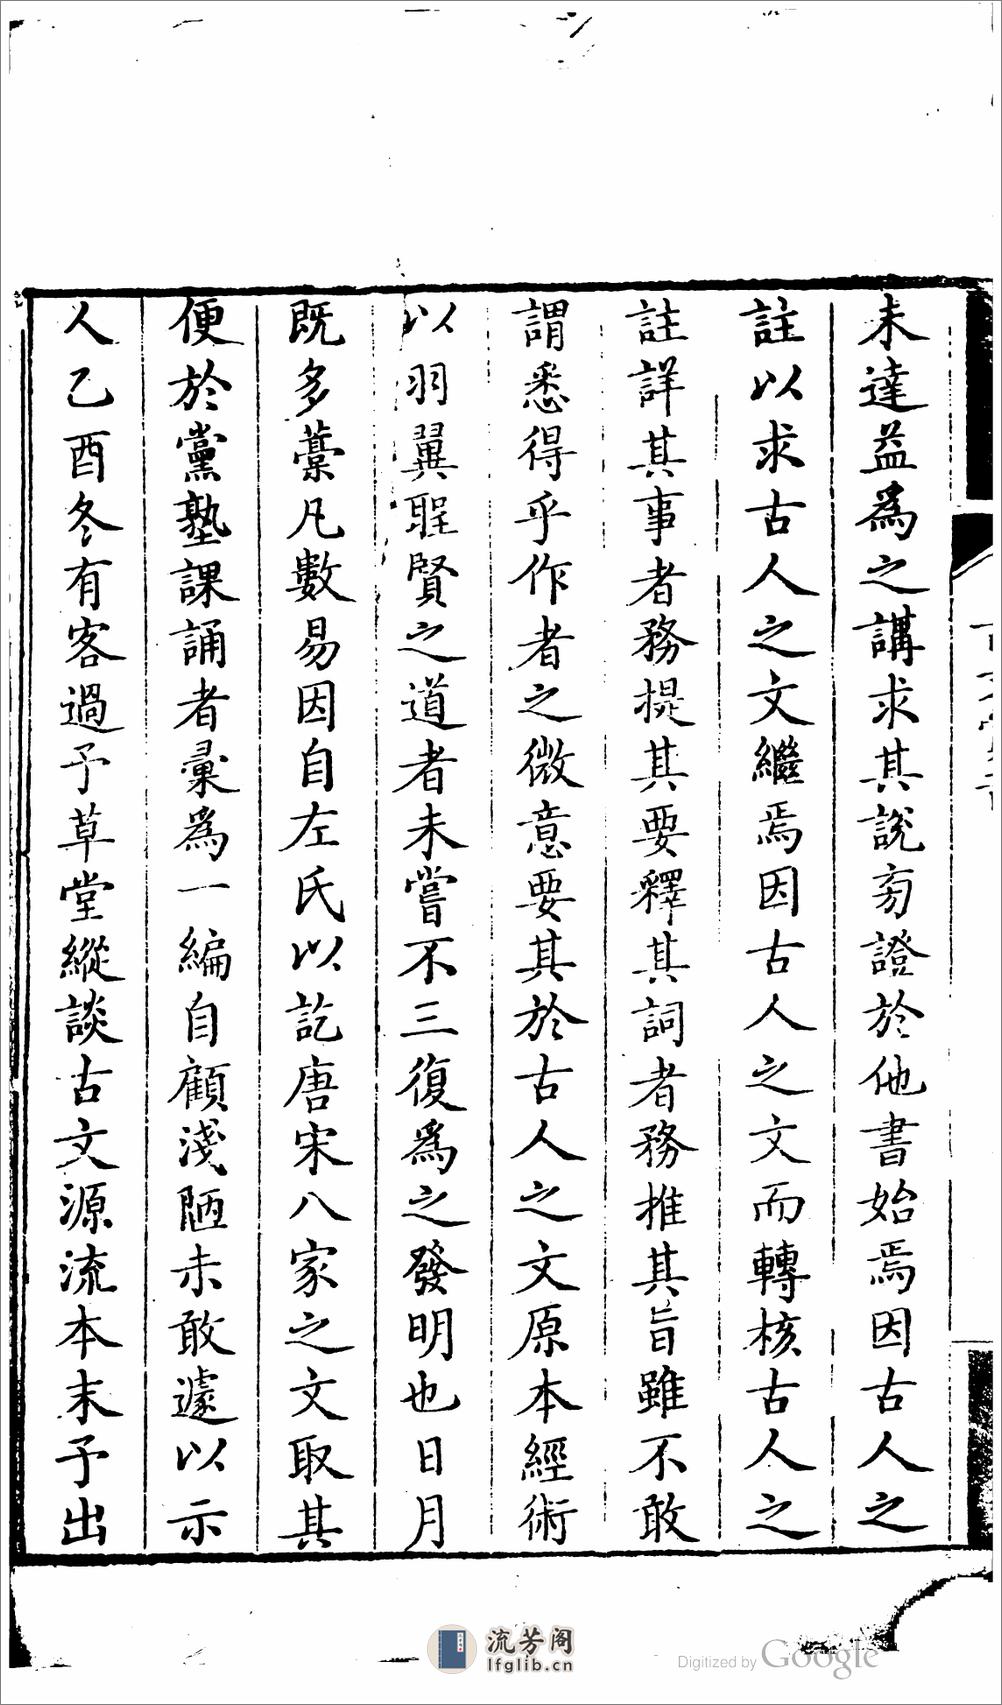 未達益爲之講求其說旁證於他書始焉因古人之
註以求古人之文繼焉因古人之文而轉核古人之
註詳其事者務提其要釋其詞者務推其旨雖不敢
謂悉得乎作者之微意要其於古人之文原本經術
以羽翼聖賢之道者未嘗不三復爲之發明也日月
既多藳凡數易因自左氏以訖唐宋八家之文取其
便於黨塾課誦者彙爲一編自顧淺陋未敢遽以示
人乙酉冬有客過予草堂縱談古文源流本末予出
流芳阁
lfglib.cn
Digitized by Google